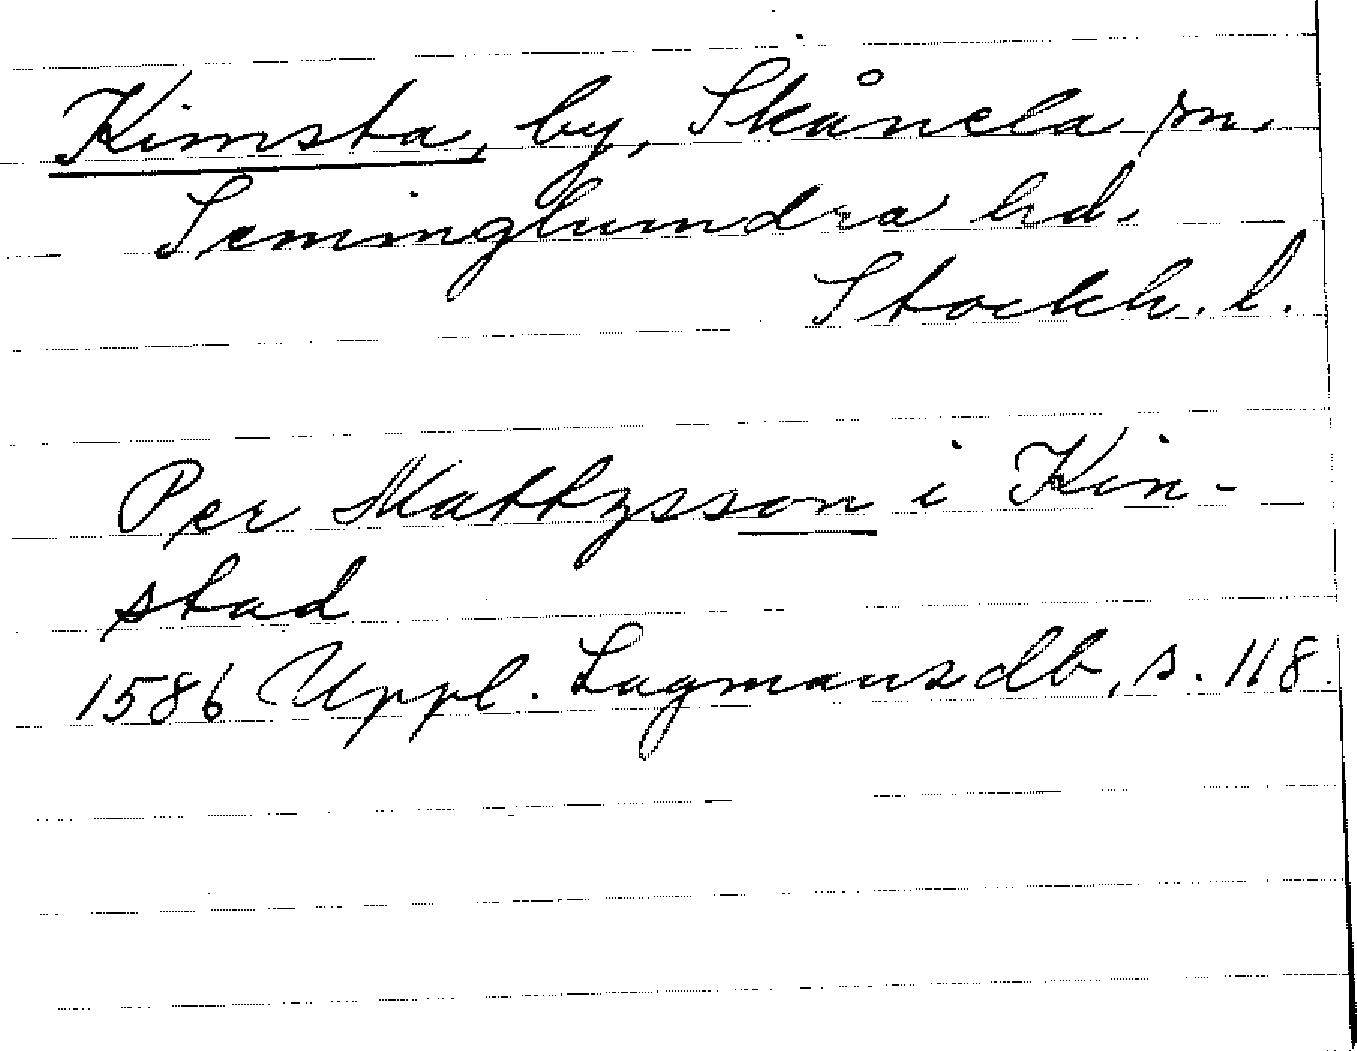 Kimsta, by, Skånela sn.
Seminghundra hd.
Stockh. l.
Per Mattzsson i Kin-
stad
1586 Uppl. Lagmansdb, s. 118.